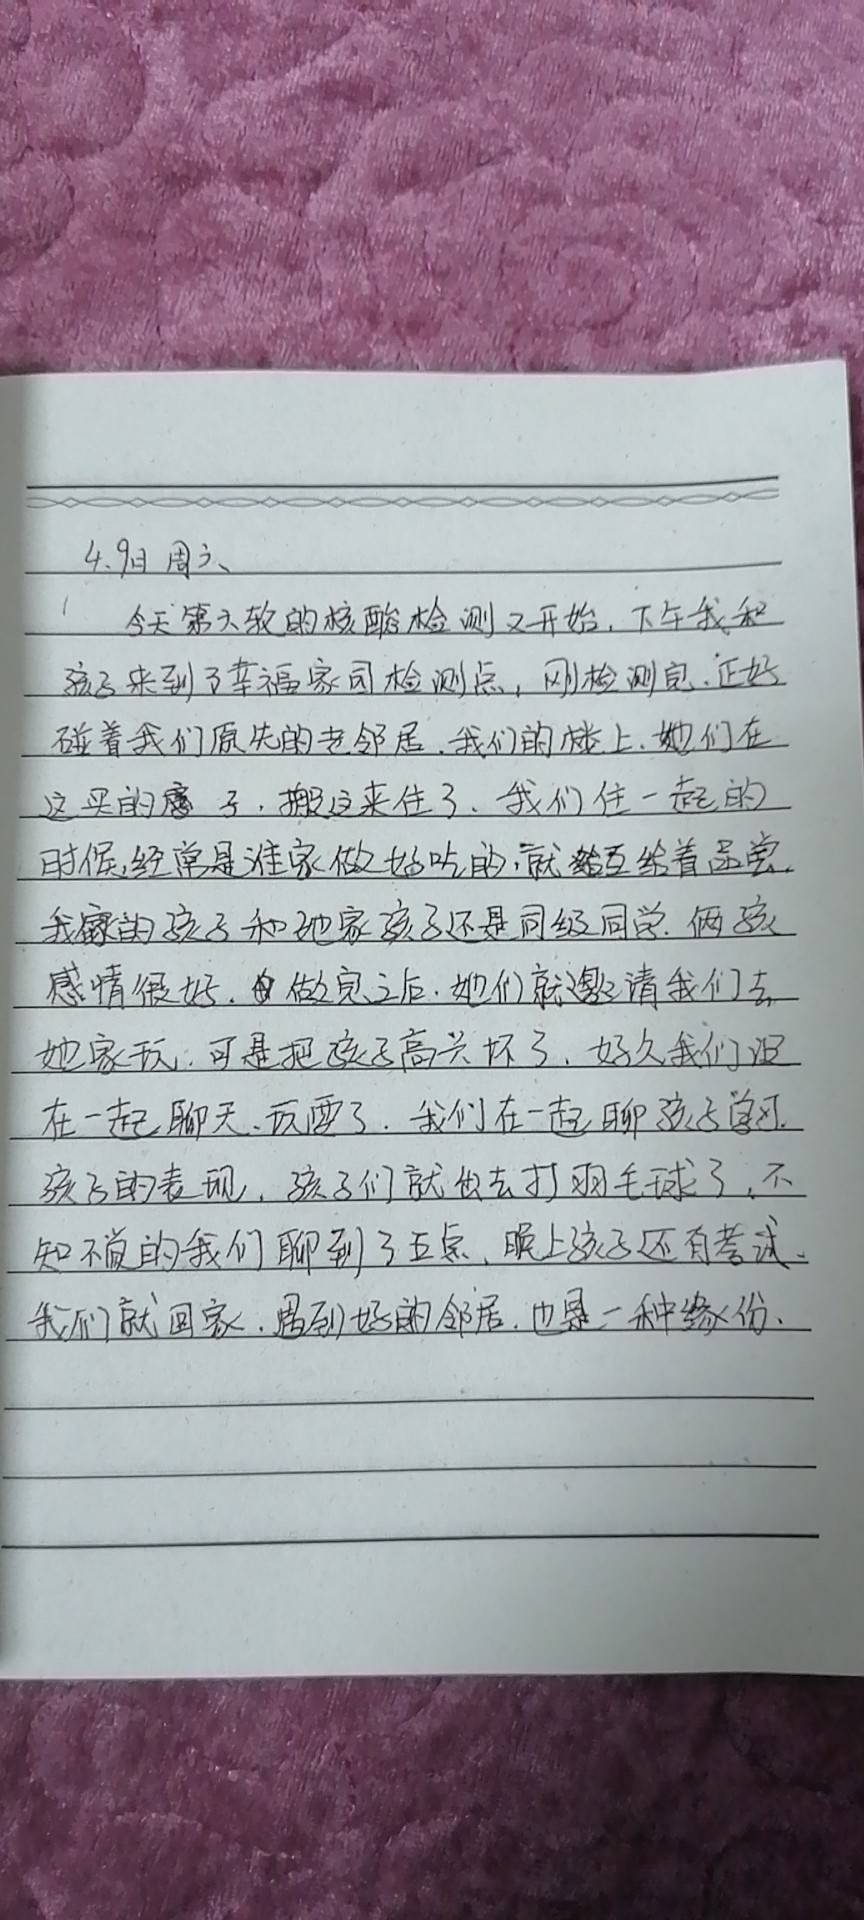 4.9日 周六、
今天第六致的核酸检测又开始，下午我和
孩子来到了幸福家司检测点，刚检测完.正好
碰着我们原先的老邻居.我们的楼上.她们在
这买的房子，搬这来住了、我们住一起的
时候,经常是谁家做好吃的,就互给着品尝.
我家的孩子和她家孩子还是同级同学.俩孩
感情很好.做完之后.她们就邀请我们去
她家玩.可是把孩子高兴坏了、好久我们没
在一起聊天、玩耍了.我们在一起聊孩子学习.
孩子的表现，孩子们就出去打羽毛球了，不
知不觉的我们聊到了五点、晚上孩子还有考试.
我们就回家.遇到好的邻居.也是一种缘份、